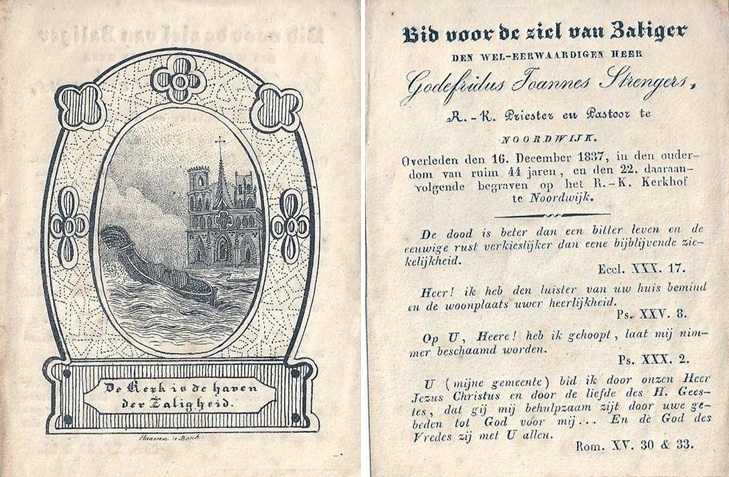 De Kerk is de haven
der Zaligheid.
Bid voor de ziel van Zaliger
DEN WEL-EERWAARDIGEN HEER
Godefridus Joannes Strengers,
R.-K. Priester en Pastoor te
NOORDWIJK.
Overleden den 16. December 1837, in den ouder-
dom van ruim 44 jaren, en den 22. daaraan-
volgende begraven op het R.-K. Kerkhof
te Noordwijk.
De dood is beter dan een bitter leven en de
eeuwige rust verkieslijker dan eene bijblijvende zie-
kelijkheid.
Eccl. XXX. 17.
Heer! ik heb den luister van uw huis bemind
en de woonplaats uwer heerlijkheid.
Ps. XXV. 8.
Op U, Heere! heb ik gehoopt, laat mij nim-
mer beschaamd worden.
Ps. XXX. 2.
U (mijne gemeente) bid ik door onzen Heer
Jezus Christus en door de liefde des H. Gees-
tes, dat gij mij behulpzaam zijt door uwe ge-
beden tot God voor mij... En de God des
Vredes zij met U allen.
Rom. XV. 30 & 33.